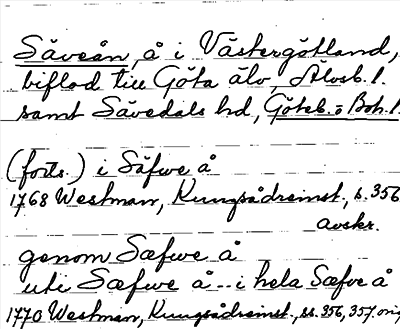 Säveån, å i Västergötland,
biflod till Göta älv, Älvsb. l.
samt Sävedals hd, Göteb. o Boh. l.
(forts.) i Säfwe å
1768 Westman, Kungsådreinst., s. 356
avskr.
genom Sæfwe å
uti Sæfwe å .. i hela Sæfve å
1770 Westman, Kungsådreinst., ss. 356, 357. orig